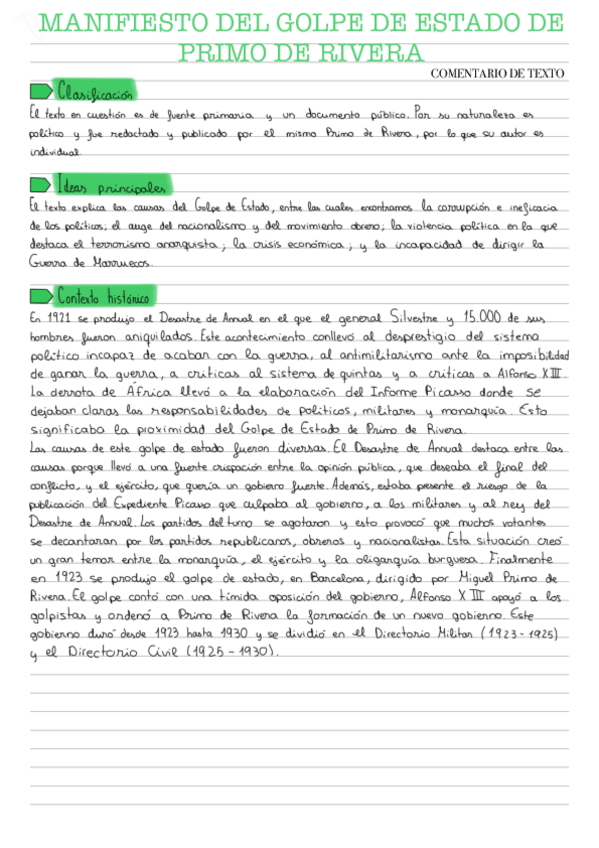 MANIFIESTO DEL GOLPE DE ESTADO DE
PRIMO DE RIVERA
COMENTARIO DE TEXTO
Clasificación
El texto en cuestión es de fuente primaria y un documento público. Por su naturaleza es
político y fue redactado y publicado por el mismo Primo de Rivera, por lo que su autor es
individual.
Ideas principales
El texto explica las causas del Golpe de Estado, entre las cuales encontramos la corrupción e ineficacia
de los políticos; el auge del nacionalismo y del movimiento obrero; la violencia política en la que
destaca el terrorismo anarquista; la crisis económica; y la incapacidad de dirigir la
Guerra de Marruecos.
Contexto histórico
En 1921 se produjo el Desastre de Annual en el que el general Silvestre y 15.000 de sus
hombres fueron aniquilados. Este acontecimiento conllevó al desprestigio del sistema
político incapaz de acabar con la guerra, al antimilitarismo ante la imposibilidad
de ganar la guerra, a críticas al sistema de quintas y a críticas a Alfonso XIII.
La derrota de África llevó a la elaboración del Informe Picasso donde se
dejaban claras las responsabilidades de políticos, militares y monarquía. Esto
significaba la proximidad del Golpe de Estado de Primo de Rivera.
Las causas de este golpe de estado fueron diversas. El Desastre de Annual destaca entre las
causas porque llevó a una fuerte crispación entre la opinión pública, que deseaba el final del
conflicto, y el ejército, que quería un gobierno fuerte. Además, estaba presente el riesgo de la
publicación del Expediente Picasso que culpaba al gobierno, a los militares y al rey del
Desastre de Annual. Los partidos del turno se agotaron y esto provocó que muchos votantes
se decantaran por los partidos republicanos, obreros y nacionalistas. Esta situación creó
un gran temor entre la monarquía, el ejército y la oligarquía burguesa. Finalmente
en 1923 se produjo el golpe de estado, en Barcelona, dirigido por Miguel Primo de
Rivera. El golpe contó con una tímida oposición del gobierno, Alfonso XIII apoyó a los
golpistas y ordenó a Primo de Rivera la formación de un nuevo gobierno. Este
gobierno duró desde 1923 hasta 1930 y se dividió en el Directorio Militar (1923-1925)
y el Directorio Civil (1925-1930).